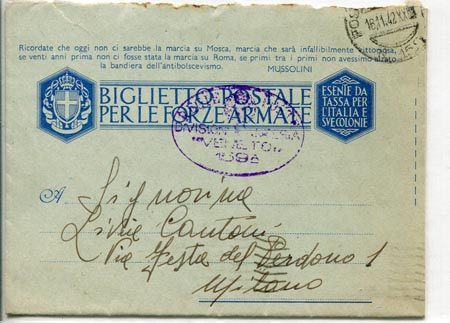 Ricordate che oggi non ci sarebbe la marcia su Mosca, marcia che sarà infallibilmente vittoriosa,
se venti anni prima non ci fosse stata la marcia su Roma, se primi tra i primi non avessimo alzato
la bandiera dell'antibolscevismo.
MUSSOLINI
BIGLIETTO POSTALE
PER LE FORZE ARMATE
ESENTE DA
TASSA PER
L'ITALIA E
SVE COLONIE
DIVISIONE
159
A Signorina
Livia Cantoni
Via Festa del Perdono 1
Milano